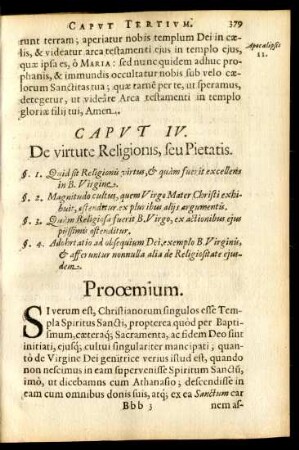 CAPUT TERTIUM. 379
runt terram; aperiatur nobis templum Dei in cæ-
lis, & videatur arca testamenti ejus in templo ejus,
quæ ipsa es, ô MARIA: sed nunc quidem adhuc pro-
phanis, & immundis occultatur nobis sub velo cæ-
lorum Sanctitas tua; quæ tamē per te, ut speramus,
detegetur, ut videāre Arca testamenti in templo
gloriæ filij tui, Amen.
Apocalypsis
11.
CAPVT IV.
De virtute Religionis, seu Pietatis.
§. 1. Quid sit Religionis virtus, & quàm fuerit excellens
in B. Virgine.
§. 2. Magnitudo cultus, quem Virgo Mater Christi exhi-
buit, ostenditur ex pluribus alijs argumentis.
§. 3. Quàm Religiosa fuerit B. Virgo, ex actionibus ejus
piissimis ostenditur.
§. 4. Adhortatio ad obsequium Dei, exemplo B. Virginis,
& afferuntur nonnulla alia de Religiositate ejus-
dem.
Prooemium.
SI verum est, Christianorum singulos esse Tem-
pla Spiritus Sancti, propterea quòd per Baptis-
mum, cæteraq; Sacramenta, ac fidem Deo sint
initiati, ejusq; cultui singulariter mancipati; quan-
tò de Virgine Dei genitrice verius istud est, quando
non nescimus in eam supervenisse Spiritum Sanctū,
imò, ut dicebamus cum Athanasio; descendisse in
eam cum omnibus donis suis, atq; ex ea Sanctum car
Bbb 3 nem as-